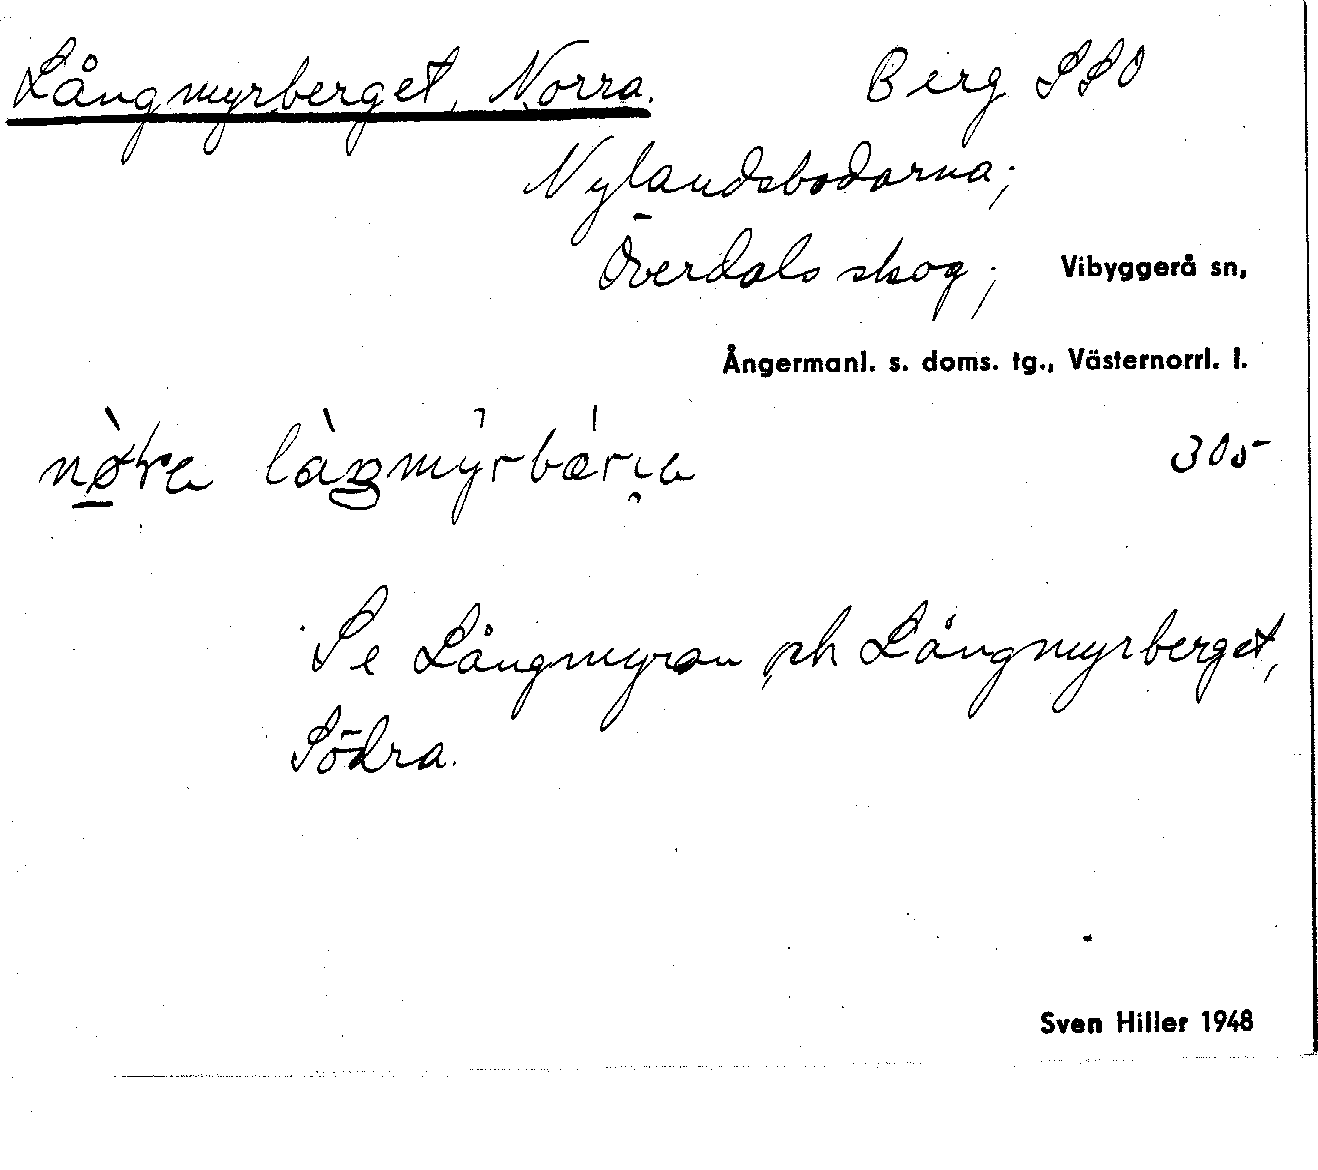 Långmyrberget, Norra. Berg SSO
Nylandsbodarna;
Överdals skog; Vibyggerå sn,
Ångermanl. s. doms. tg., Västernorrl. l.
305
Se Långmyran och Långmyrberget,
Södra.
Sven Hiller 1948